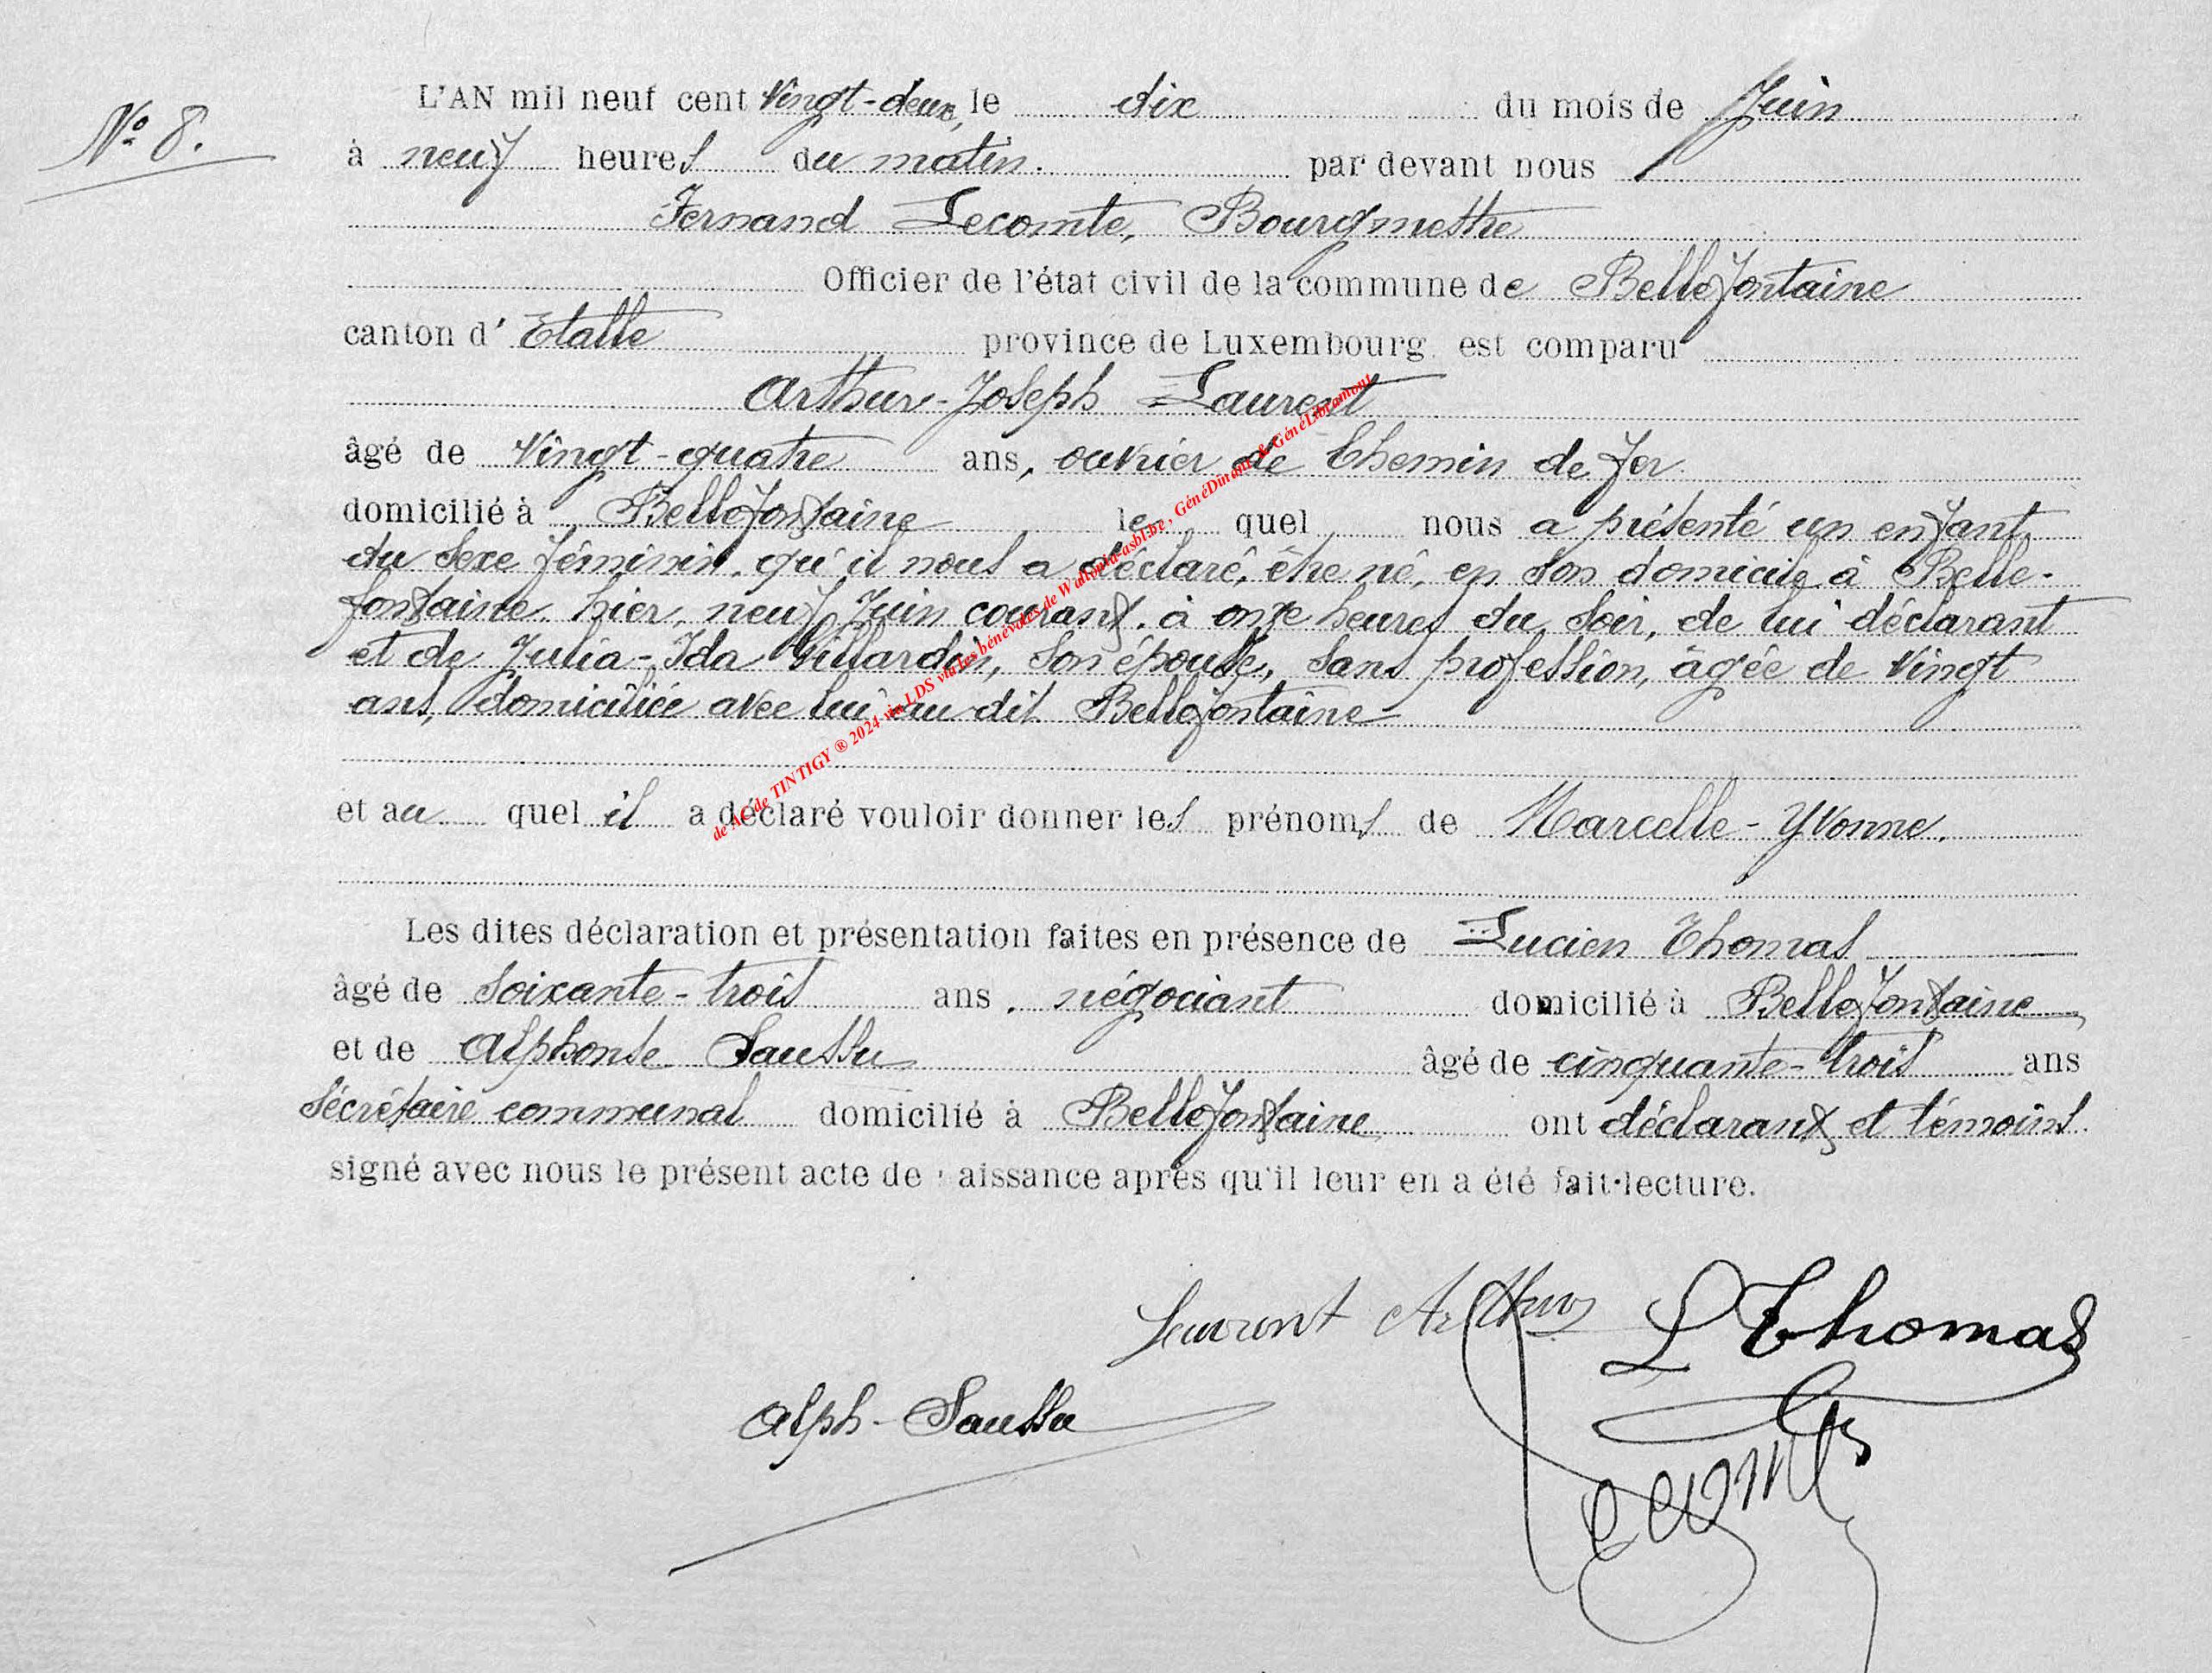 N° 8.
L'AN mil neuf cent Vingt-deux, le dix du mois de Juin
à neuf heures du matin. par devant nous
Fernand Lecomte, Bourgmestre
Officier de l'état civil de la commune de Bellefontaine
canton d' Etalle province de Luxembourg est comparu
Arthur-Joseph Laurent
âgé de Vingt-quatre ans, ouvrier de Chemin de fer
domicilié à Bellefontaine le quel nous a présenté un enfant
du sexe féminin, qu'il nous a déclaré, être né, en son domicile à Belle-
fontaine, hier, neuf Juin courant, à onze heures du soir, de lui déclarant
et de Julia-Ida Villardin, son épouse, sans profession, âgée de vingt
ans, domiciliée avec lui au dit Bellefontaine
et au quel il a déclaré vouloir donner les prénoms de Marcelle-Yvonne.
Les dites déclaration et présentation faites en présence de Lucien Thomas
âgé de soixante-trois ans, négociant domicilié à Bellefontaine
et de Alphonse Saussu âgé de cinquante-trois ans
Sécrétaire communal domicilié à Bellefontaine ont déclarant et témoins
signé avec nous le présent acte de naissance après qu'il leur en a été fait lecture.
Laurent Arthur L Thomas
Alph-Saussu
Lecomte
de AC de TINTIGY ® 2024 via LDS via les bénévoles de Wallonia-asbl.be, GénéDinant & GénéLibramont